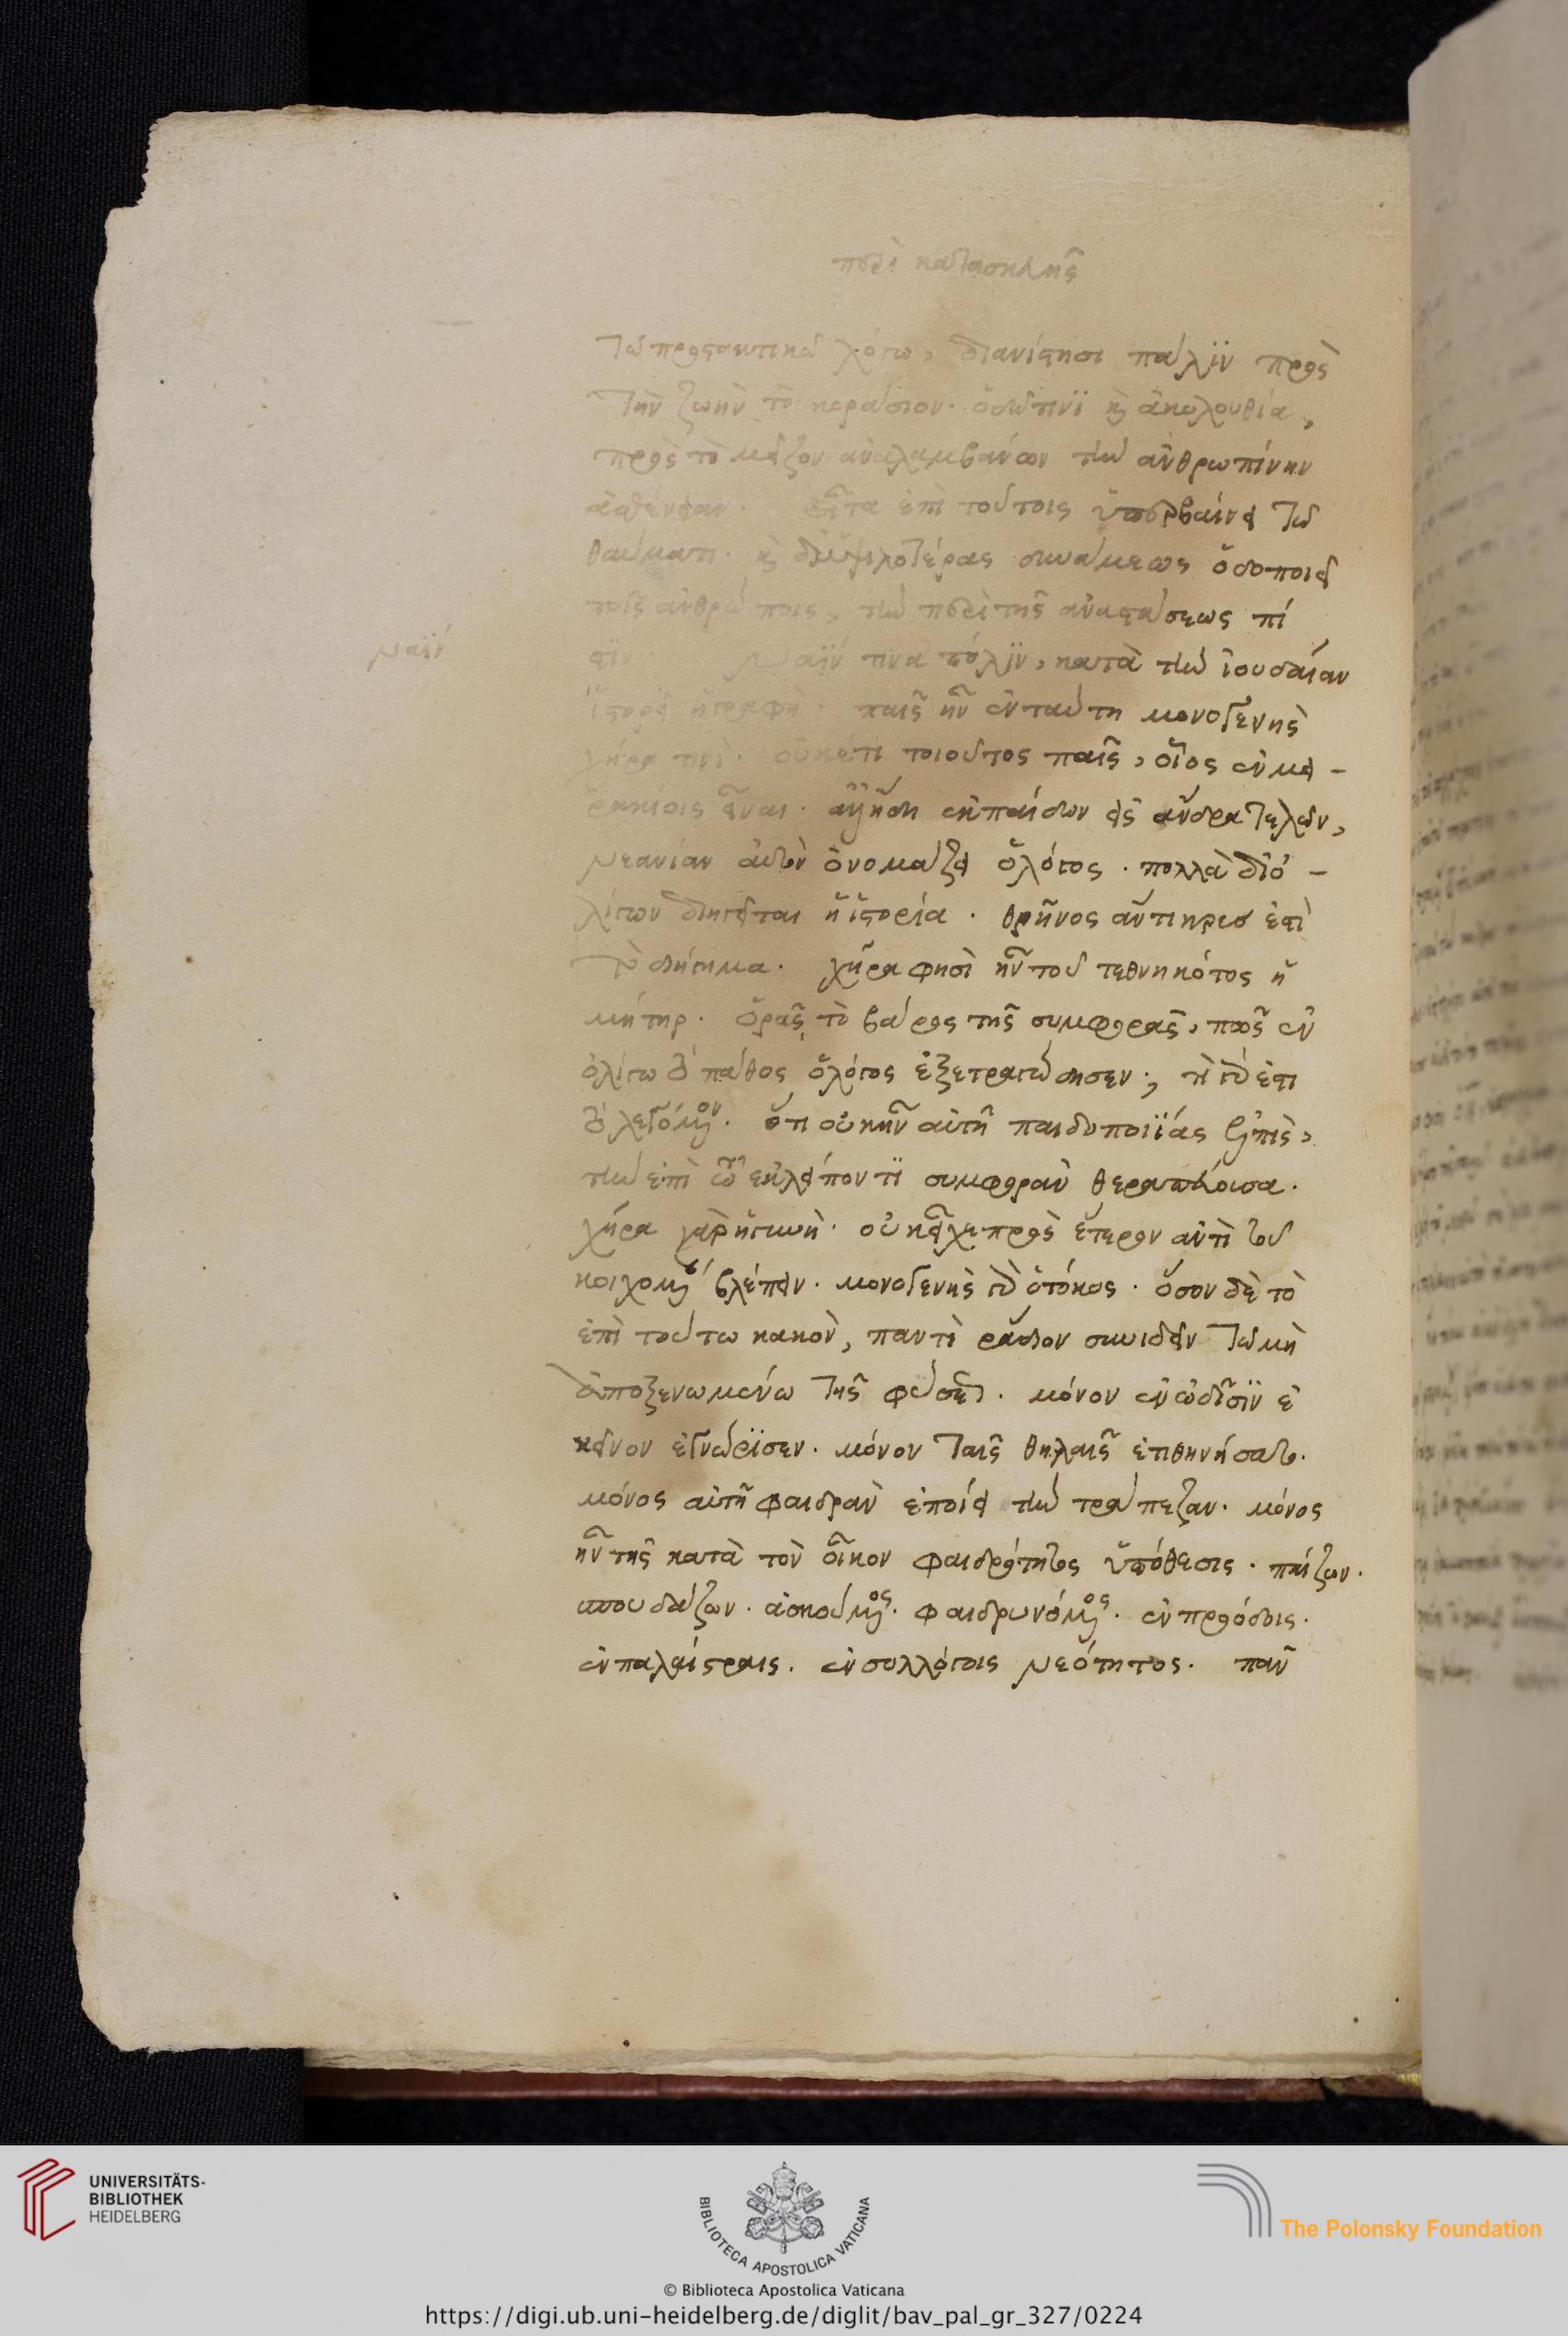 περὶ κατασκευῆς
τῶ προστακτικῶ λόγω, διανίστησι πάλϊν πρὸς
τὴν ζωὴν τὸ κοράσιον. ὁδῶ τινϊ καὶ ἀκολουθία,
πρὸς τὸ μεῖζον ἀναλαμβάνων τὴν ἀνθρωπίνην
ἀσθένειαν. εἶτα ἐπὶ τούτοις ὑπερβαίνει τῶ
θαύματι. καὶ δι' ὑψηλοτέρας δυνάμεως ὁδοποιεῖ
τοῖς ἀνθρώποις, τὴν περὶ τῆς ἀναστάσεως πί
στϊν. ναϊν τινα πόλϊν, κατὰ τὴν ἰουδαίαν
ναϊν
ἱστορεῖ ἡ γραφὴ. παῖς ἦν ἐν ταύτη μονογενὴς
χήρα τινὶ. οὐκέτι τοιοῦτος παῖς, οἷος ἐν μει-
ρακίοις εἶναι. ἀλλ' ἤδη ἐκ παίδων εἰς ἄνδρα τελῶν,
νεανίαν αὐτὸν ὀνομάζει ὁ λόγος. πολλὰ δι' ὀ-
λίγων διηγεῖται ἡ ἱστορία. θρῆνος ἄντικρυς ἐστὶ
τὸ διήγημα. χῆρα φησὶ ἦν τοῦ τεθνηκότος ἡ
μήτηρ. ὁρᾶς τὸ βάρος τῆς συμφορᾶς, πῶς ἐν
ὀλίγω τὸ πάθος ὁ λόγος ἐξετραγώδησεν; τί γάρ ἐστι
τὸ λεγόμενον. ὅτι οὐκ ἦν αὐτῆ παιδοποιϊάς ἐλπὶς,
τὴν ἐπὶ τῶ ἐκλείποντϊ συμφορὰν θεραπεύουσα.
χήρα γὰρ ἡ γυνὴ. οὐκ εἶχε πρὸς ἕτερον ἀντὶ τοῦ
κοιχομένου βλέπειν. μονογενὴς γὰρ ὁ τόκος. ὅσον δὲ τὸ
ἐπὶ τούτω κακὸν, παντὶ ράδιον συνιδεῖν τῶ μὴ
ἀποξενωμένω τῆς φύσεως. μόνον ἐν ὠδῖσϊν ἐ
κεῖνον ἐγνώρϊσεν. μόνον ταῖς θηλαῖς ἐτιθηνήσατο.
μόνος αὐτῆ φαιδρὰν ἐποίει τὴν τράπεζαν. μόνος
ἦν τῆς κατὰ τὸν οἶκον φαιδρότητος ὑπόθεσις. παίζων.
σπουδάζων. ἀσκούμενος. φαιδρυνόμενος. ἐν προόδοις.
ἐν παλαίστραις. ἐν συλλόγοις νεότητος. πᾶν
UNIVERSITÄTS-
BIBLIOTHEK
HEIDELBERG
BIBLIOTECA APOSTOLICA VATICANA
© Biblioteca Apostolica Vaticana
The Polonsky Foundation
https://digi.ub.uni-heidelberg.de/diglit/bav_pal_gr_327/0224